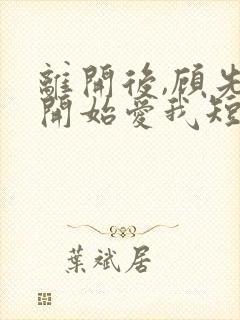 離開後,顾先
開始愛我短
葉斌居